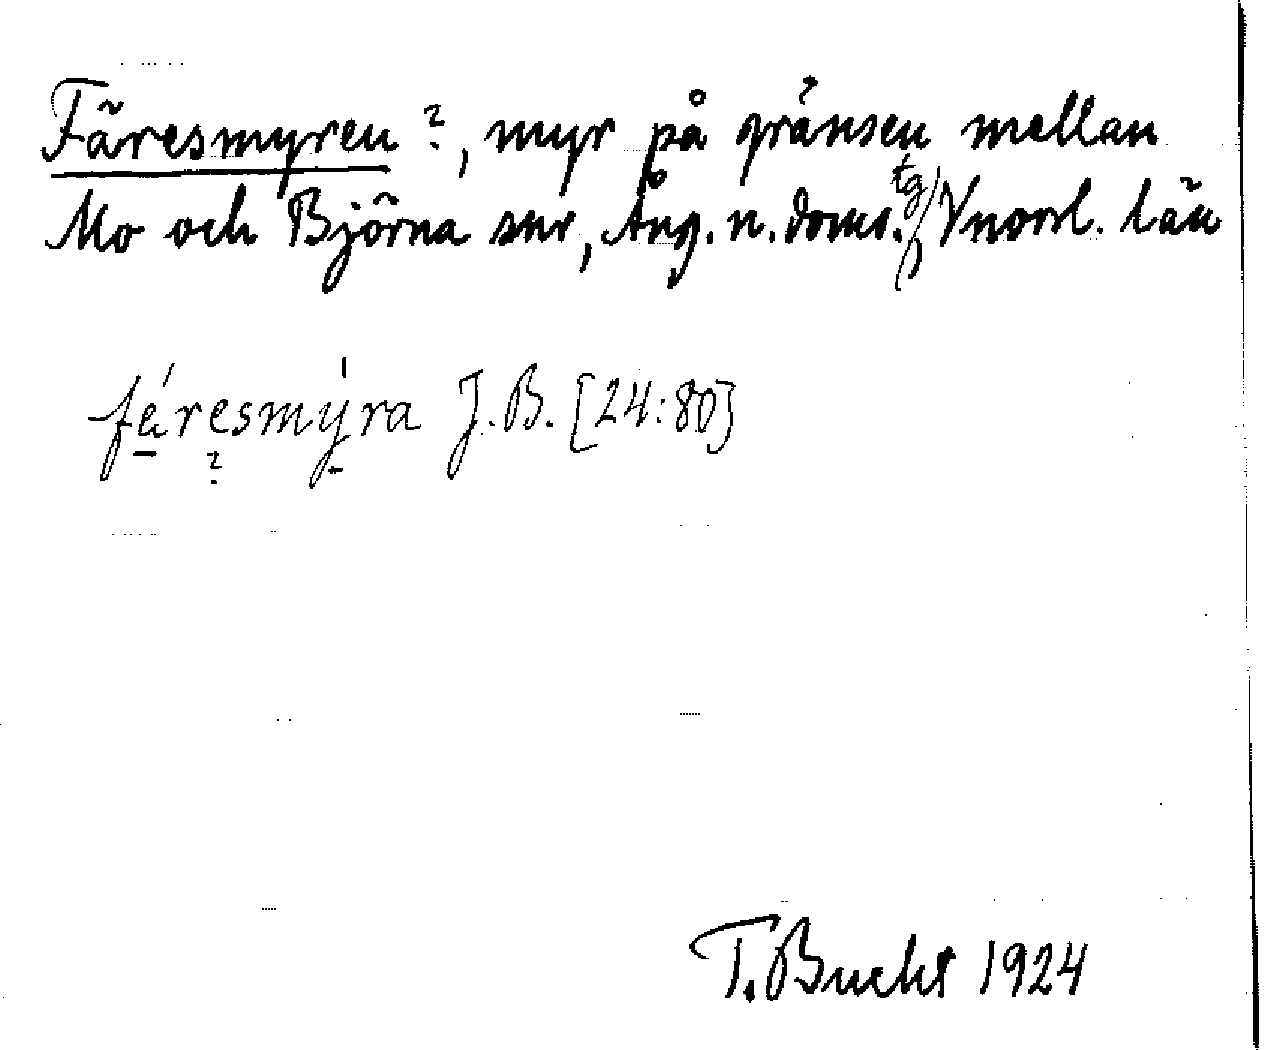 Färesmyren?, myr på gränsen mellan
Mo och Björna snr, Ång. n. doms.tg, Vnorrl. län
färesmyra J.B. [24:80]
T. Bucht 1924